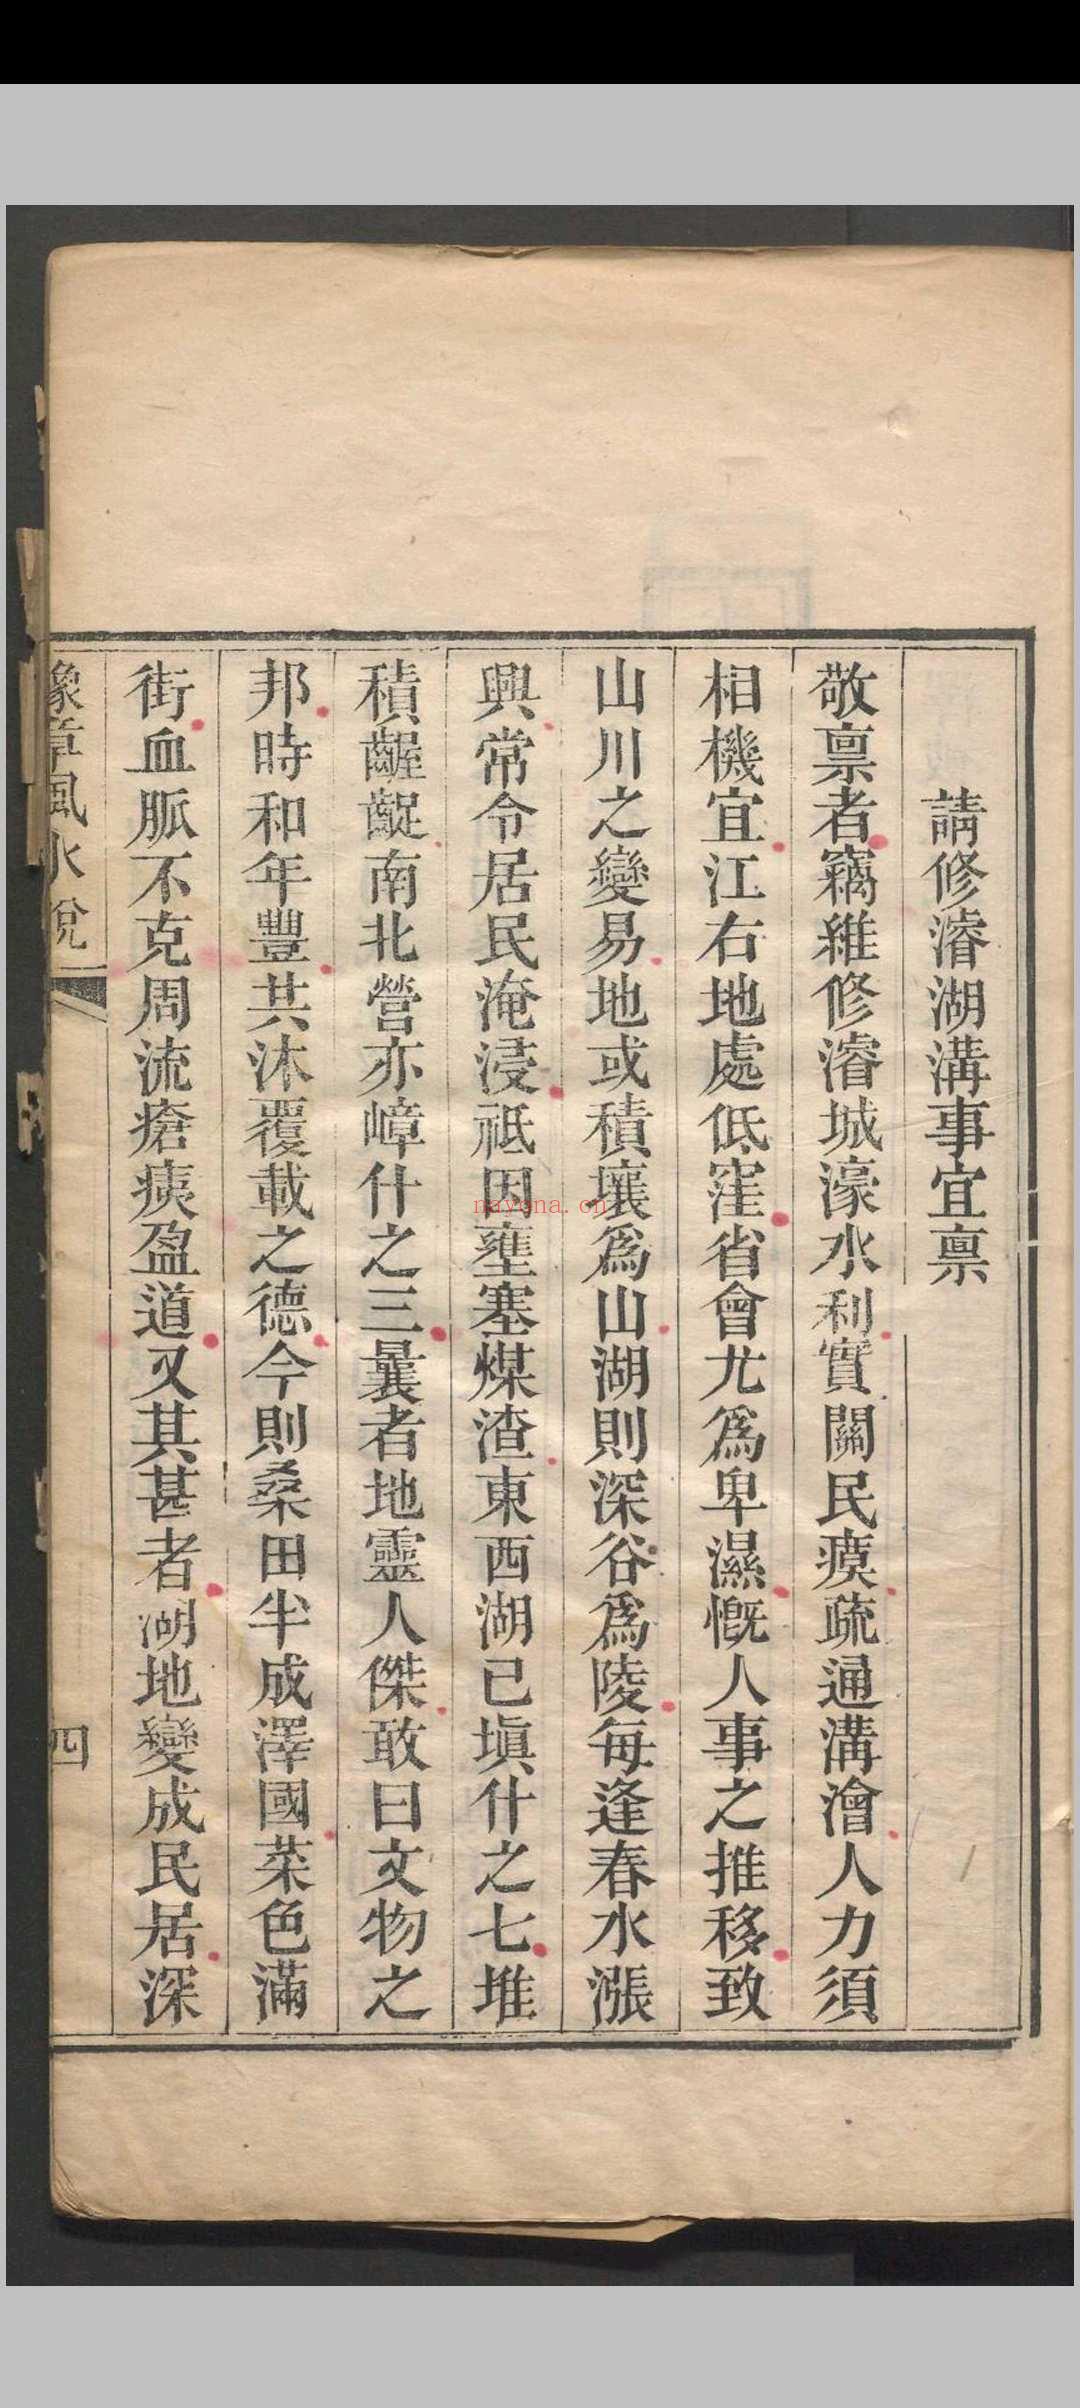 請修濬湖溝事宜稟
敬稟者竊維修濬城濠水利實關民瘼疏通溝澮人力須
相機宜江右地處低窪省會尤爲卑濕慨人事之推移致
山川之變易地或積壤爲山湖則深谷爲陵每逢春水漲
興常令居民淹浸祗因壅塞煤渣東西湖已塡什之七堆
積齷齪南北營亦嶂什之三曩者地靈人傑敢曰文物之
邦時和年豐共沐覆載之德今則桑田半成澤國菜色滿
街血脈不克周流瘡痍盈道又其甚者湖地變成民居深
豫章風水說
四
nayona.cn